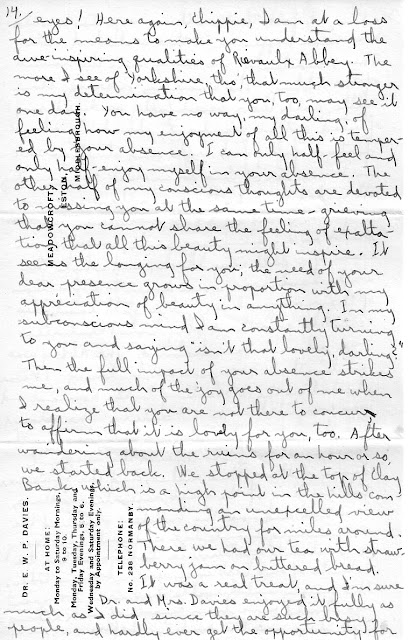 14.
eyes! Here again, Chippie, I am at a loss
for the means to make you understand the
awe-inspiring qualities of Rievaulx Abbey. The
more I see of Yorkshire, tho', that much stronger
is my determination that you, too, may see it
one day. You have no way, my darling, of
feeling how my enjoyment of all this is temper-
ed by your absence. I can only half feel and
only half enjoy myself in your absence. The
other half of my conscious thoughts are devoted
to missing you at the same time - grieving
that you cannot share the feeling of exalta-
tion that all this beauty might inspire. It
seems the longing for you; the need of your
dear presence grows in proportion with my
appreciation of beauty in anything. In my
subconscious mind I am constantly turning
to you and saying "isn't that lovely, darling?"
Then the full impact of your absence strikes
me, and much of the joy goes out of me when
I realize that you are not there to concur,
to affirm that it is lovely for you, too. After
wandering about the ruins for an hour or so,
we started back. We stopped at the top of Clay
Bank, which is a high point in the hills com-
manding an unexcelled view
of the country for miles around.
There we had our tea with straw-
berry jam on buttered bread.
It was a real treat, and I'm sure
Dr. and Mrs. Davies enjoyed it fully as
much as I did, since they are such busy
people, and hardly ever get the opportunity for
MEADOWCROFT,
ESTON,
MIDDLESBROUGH.
DR. E. W. P. DAVIES,
AT HOME:
Monday to Saturday Mornings,
9 to 10.
Monday, Tuesday, Thursday and
Friday Evenings, 5 to 6.
Wednesday and Saturday Evenings,
by Appointment only.
TELEPHONE:
No. 238 NORMANBY.